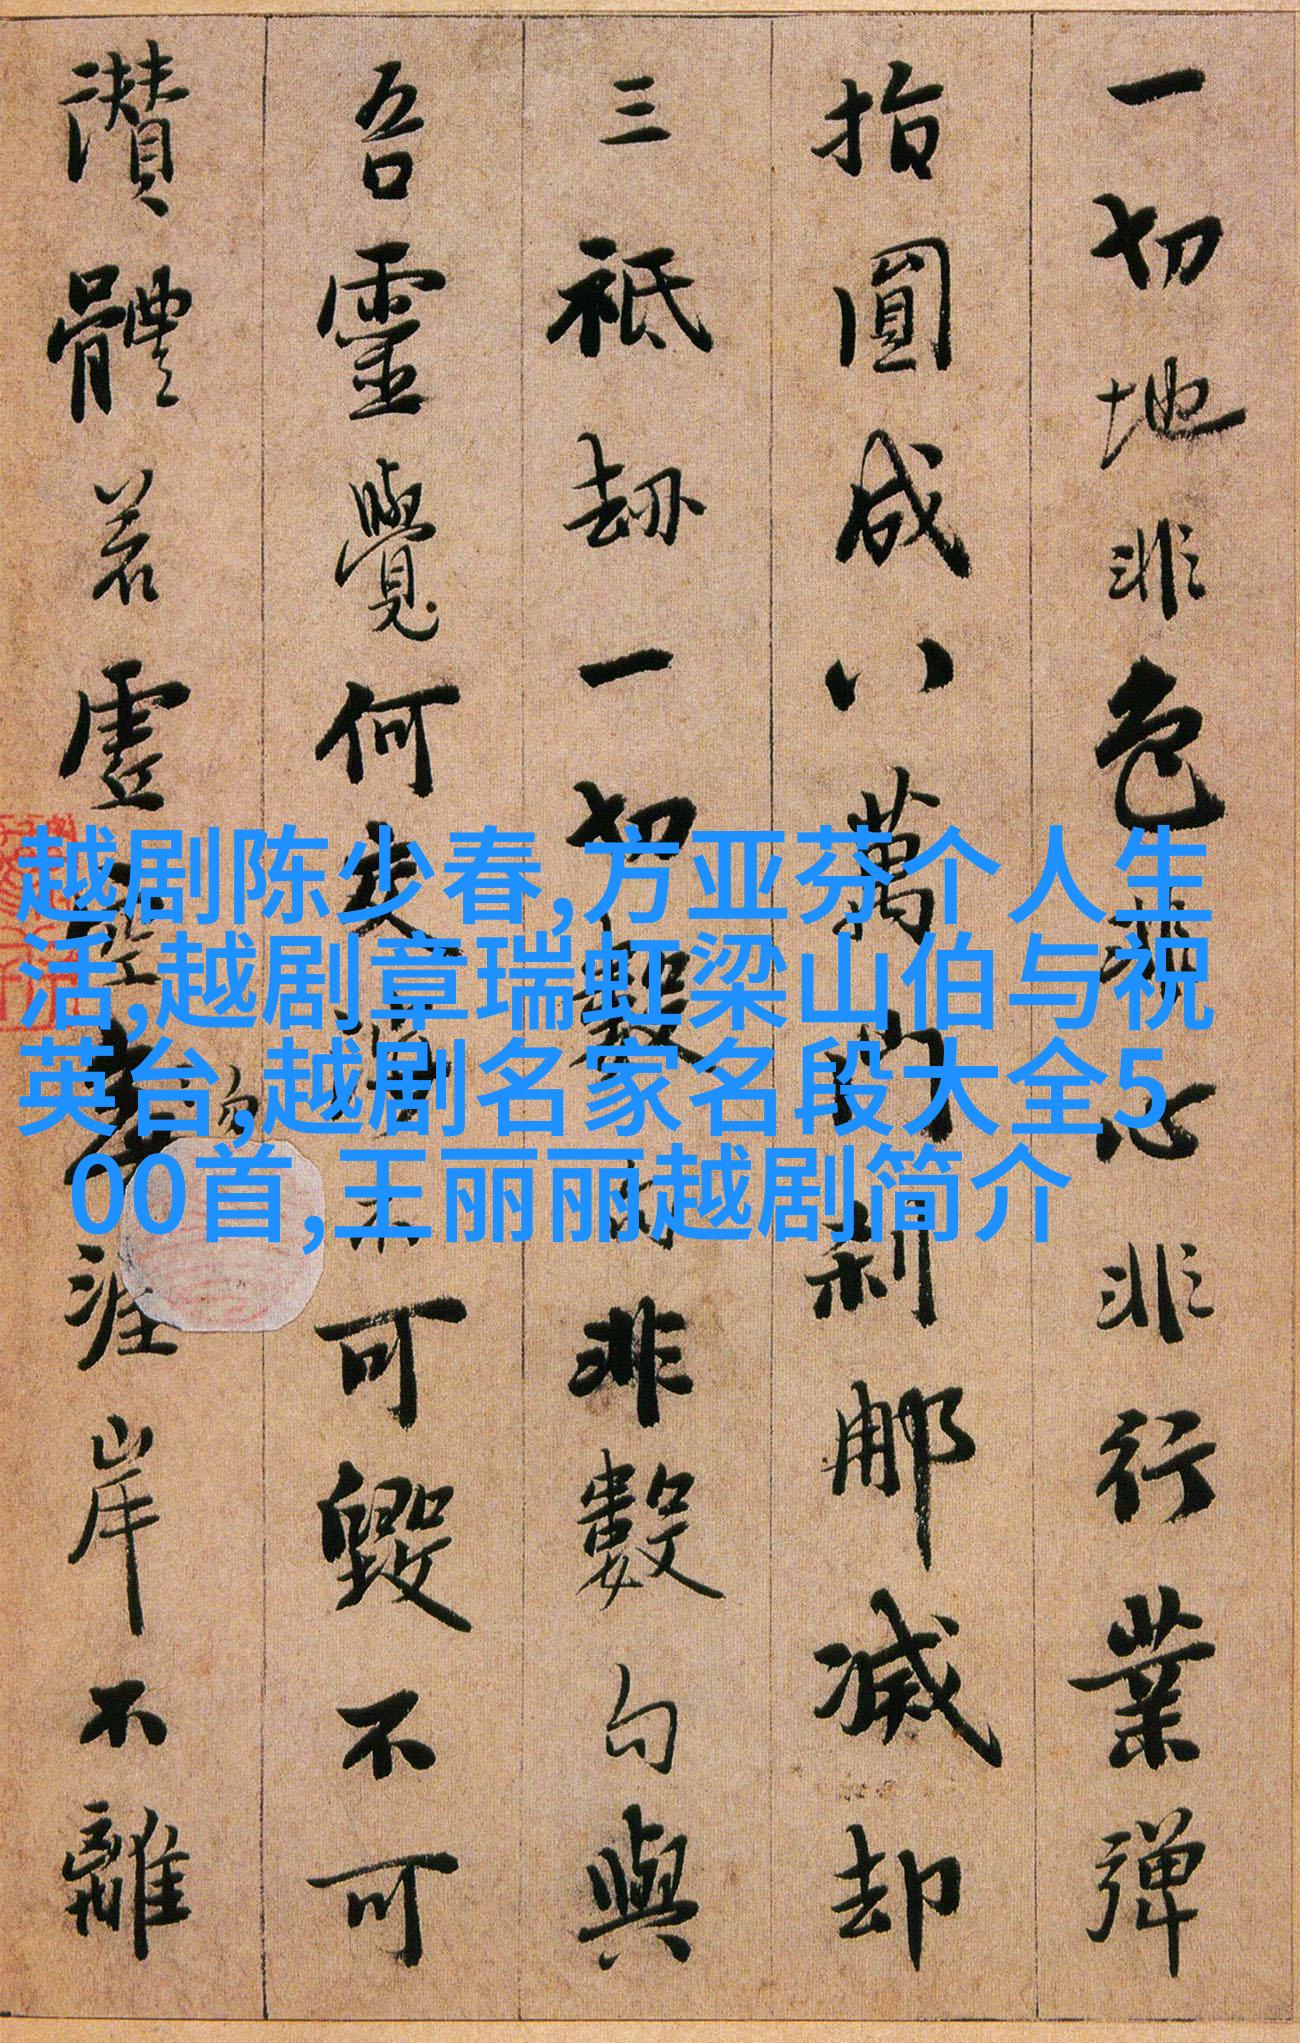 一切地非色非心非行業彈
指圓成八萬門刹那滅却
三祇劫一切數句非數句與
吾靈覺何交涉不可毀不可
讃體若虛空勿涯岸不離
越剧陈少春,方亚芬个人生
活,越剧章瑞虹梁山伯与祝
英台,越剧名家名段大全5
00首,王丽丽越剧简介